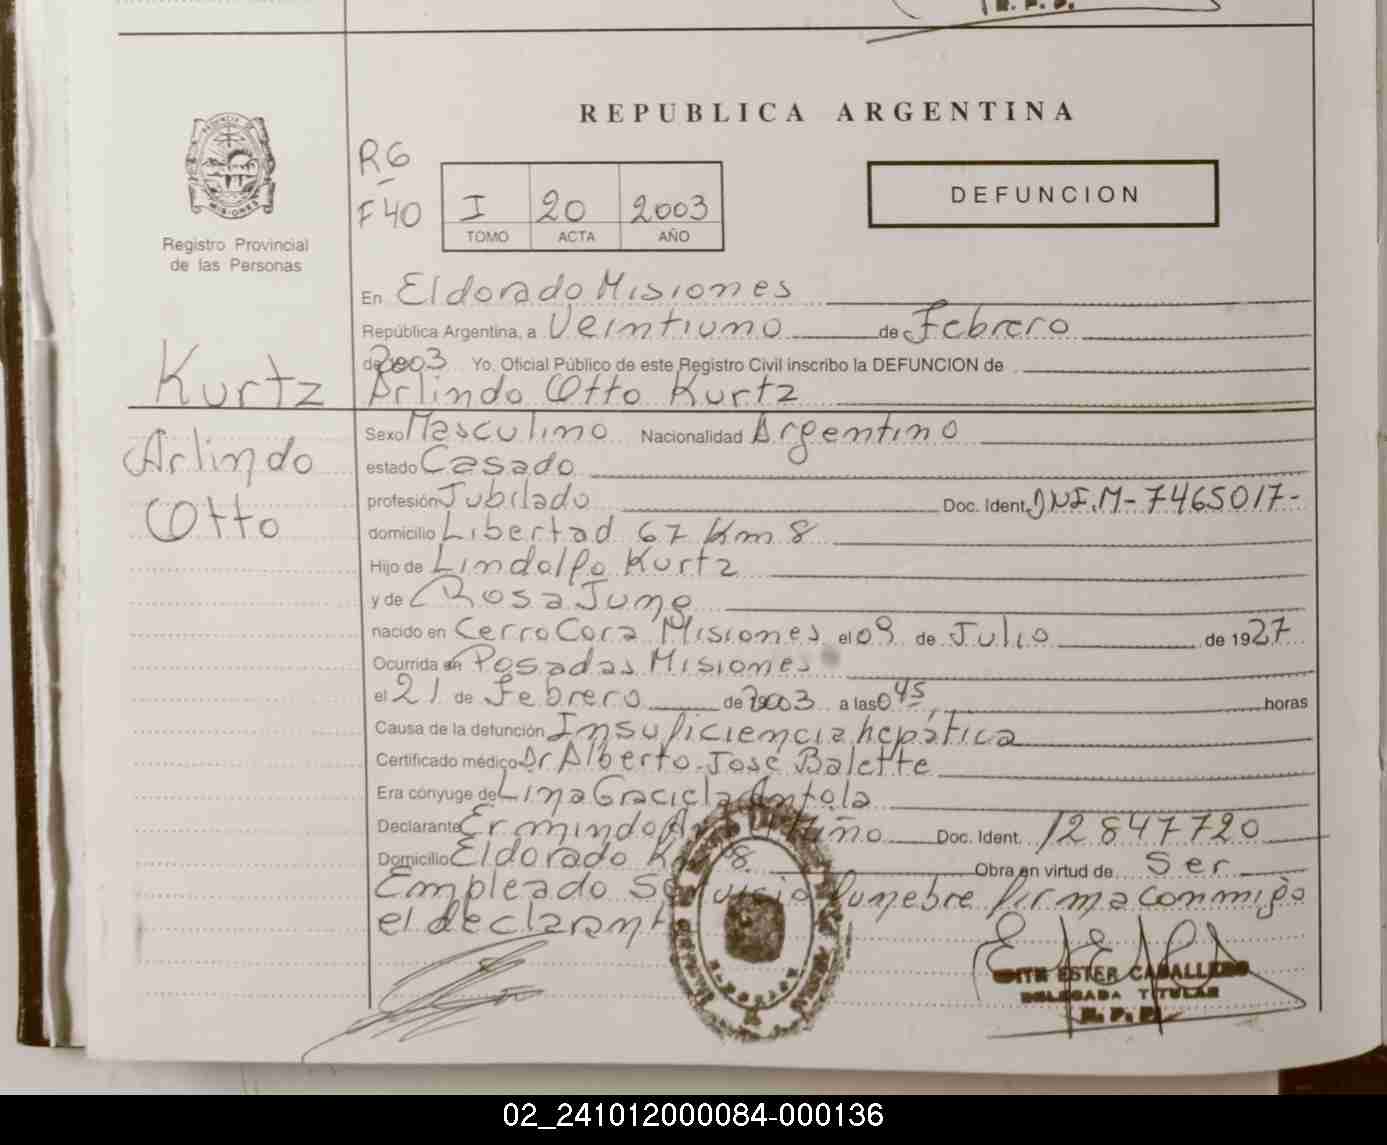 R. P. P.
REPUBLICA ARGENTINA
R6
F 40
I 20 2003
TOMO ACTA AÑO
DEFUNCION
PROVINCIA DE
MISIONES
Registro Provincial
de las Personas
En Eldorado Misiones
República Argentina, a Veintiuno de Febrero
de 2003 Yo, Oficial Público de este Registro Civil inscribo la DEFUNCION de
Kurtz
Arlindo Otto Kurtz
Arlindo
Otto
Sexo Masculino Nacionalidad Argentino
estado Casado
profesión Jubilado Doc. Ident. DNI.M-7465017-
domicilio Libertad 67 Km 8
Hijo de Lindolfo Kurtz
y de Rosa Jung
nacido en Cerro Cora Misiones el 09 de Julio de 1927
Ocurrida en Posadas Misiones
el 21 de Febrero de 2003 a las 0,45 horas
Causa de la defunción Insuficiencia hepática
Certificado médico Dr Alberto José Balette
Era cónyuge de Lina Graciela Antola
Declarante Ermindo Doc. Ident. 12847720
Domicilio Eldorado Km 8 Obra en virtud de Ser
Empleado Servisio funebre firma conmigo
el declarante
EDITH ESTER CABALLERO
DELEGADA TITULAR
R. P. P.
ELDORADO
02_241012000084-000136